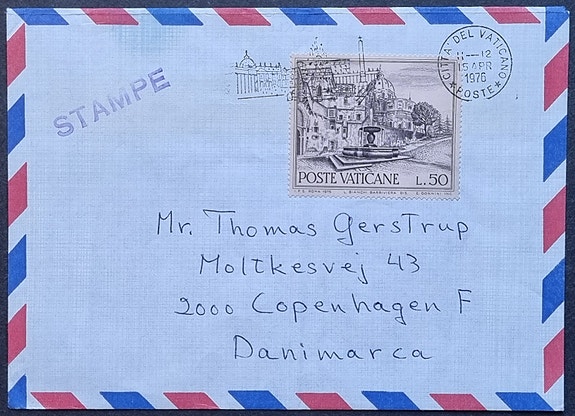 STAMPE
CITTA' DEL VATICANO
11--12
15 APR
1976
* POSTE *
POSTE VATICANE L. 50
I.P.S. ROMA 1975 L. BIANCHI BARRIVIERA DIS. E. DONNINI INC.
Mr. Thomas Gerstrup
Moltkesvej 43
2000 Copenhagen F
Danimarca